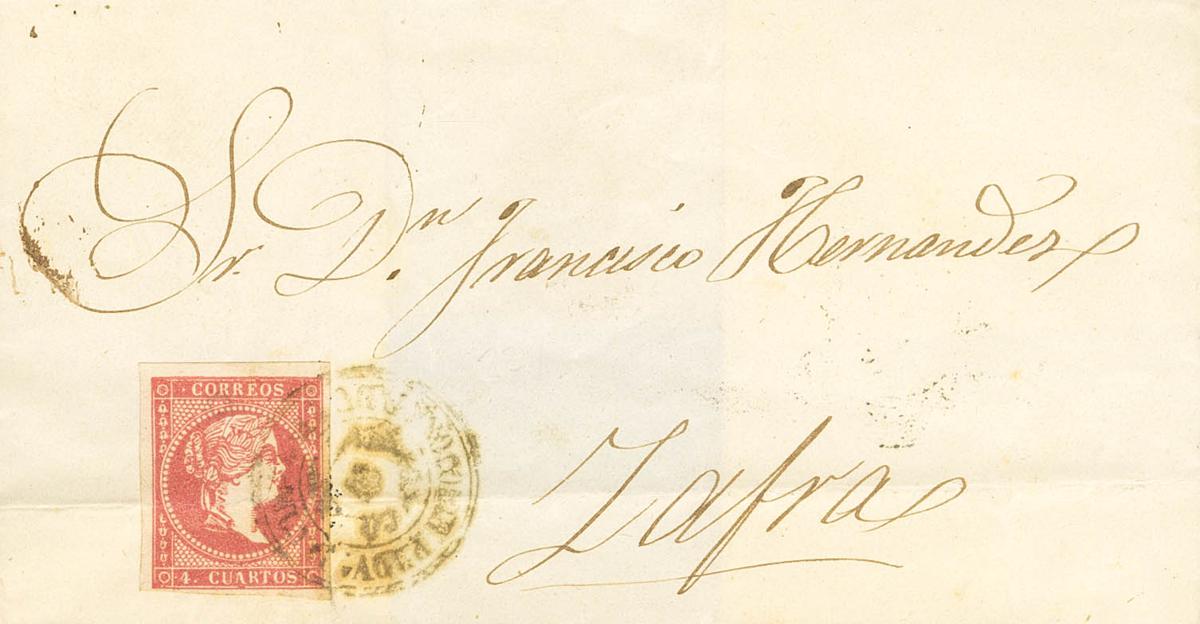 Sr. Dn. Francisco Hernandez
CORREOS
4. CUARTOS
Zafra